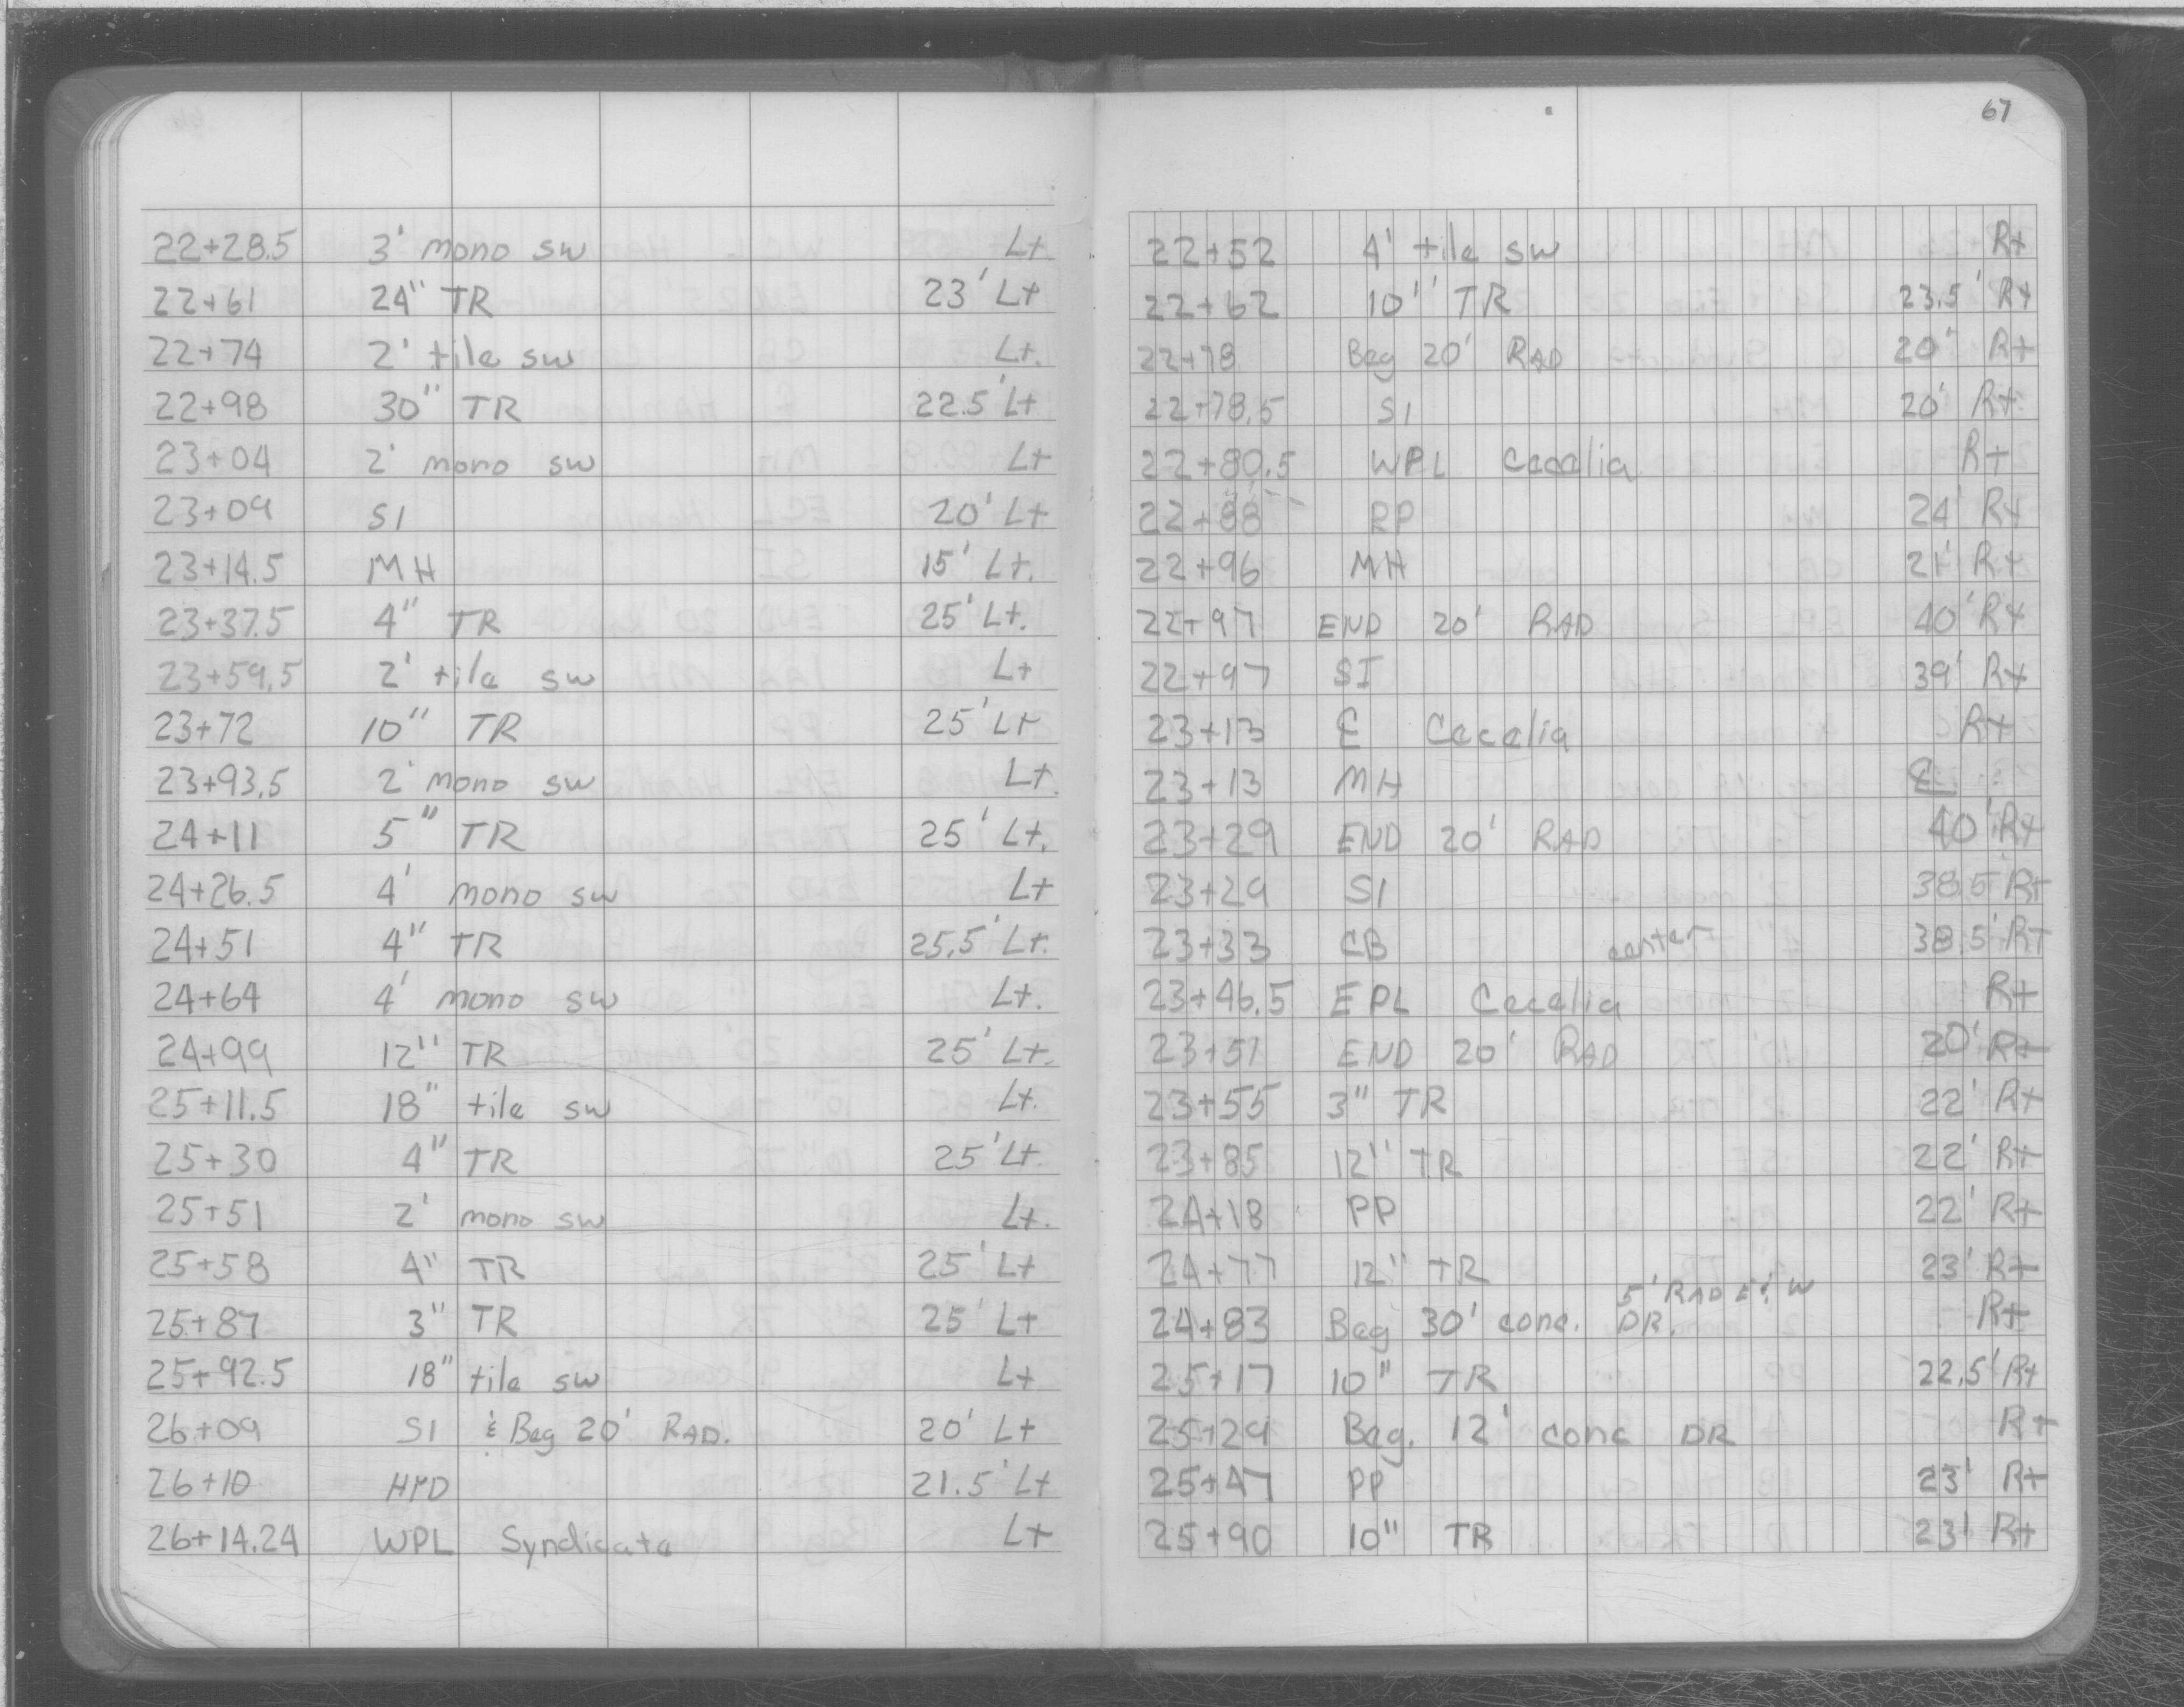 22+28.5 3' mono sw Lt
22+61 24" TR 23' Lt
22+74 2' tile sw Lt.
22+98 30" TR 22.5' Lt
23+04 2' mono sw Lt
23+09 SI 20' Lt
23+14.5 MH 15' Lt.
23+37.5 4" TR 25' Lt.
23+59.5 2' tile sw Lt
23+72 10" TR 25' Lt
23+93.5 2' mono sw Lt.
24+11 5" TR 25' Lt.
24+26.5 4' mono sw Lt
24+51 4" TR 25.5' Lt.
24+64 4' mono sw Lt.
24+99 12" TR 25' Lt.
25+11.5 18" tile sw Lt.
25+30 4" TR 25' Lt.
25+51 2' mono sw Lt.
25+58 4" TR 25' Lt
25+87 3" TR 25' Lt
25+92.5 18" tile sw Lt
26+09 SI & Beg 20' RAD. 20' Lt
26+10 HYD 21.5' Lt
26+14.24 WPL Syndicate Lt
67
22+52 4' tile sw Rt
22+62 10" TR 23.5' Rt
22+78 Beg 20' RAD 20' Rt
22+78.5 SI 20' Rt.
22+80.5 WPL Cecelia Rt
22+88 PP 24' Rt
22+96 MH 21' Rt
22+97 END 20' RAD 40' Rt
22+97 SI 39' Rt
23+13 ℄ Cecelia Rt
23+13 MH ℄
23+29 END 20' RAD 40' Rt
23+29 SI 38.5' Rt
23+33 CB center 38.5' Rt
23+46.5 EPL Cecelia Rt
23+51 END 20' RAD 20' Rt
23+55 3" TR 22' Rt
23+85 12" TR 22' Rt
24+18 PP 22' Rt
24+77 12" TR 23' Rt
5' RAD E & W
24+83 Beg 30' conc. DR. Rt
25+17 10" TR 22.5' Rt
25+29 Beg. 12' conc DR Rt
25+47 PP 23' Rt
25+90 10" TR 23' Rt